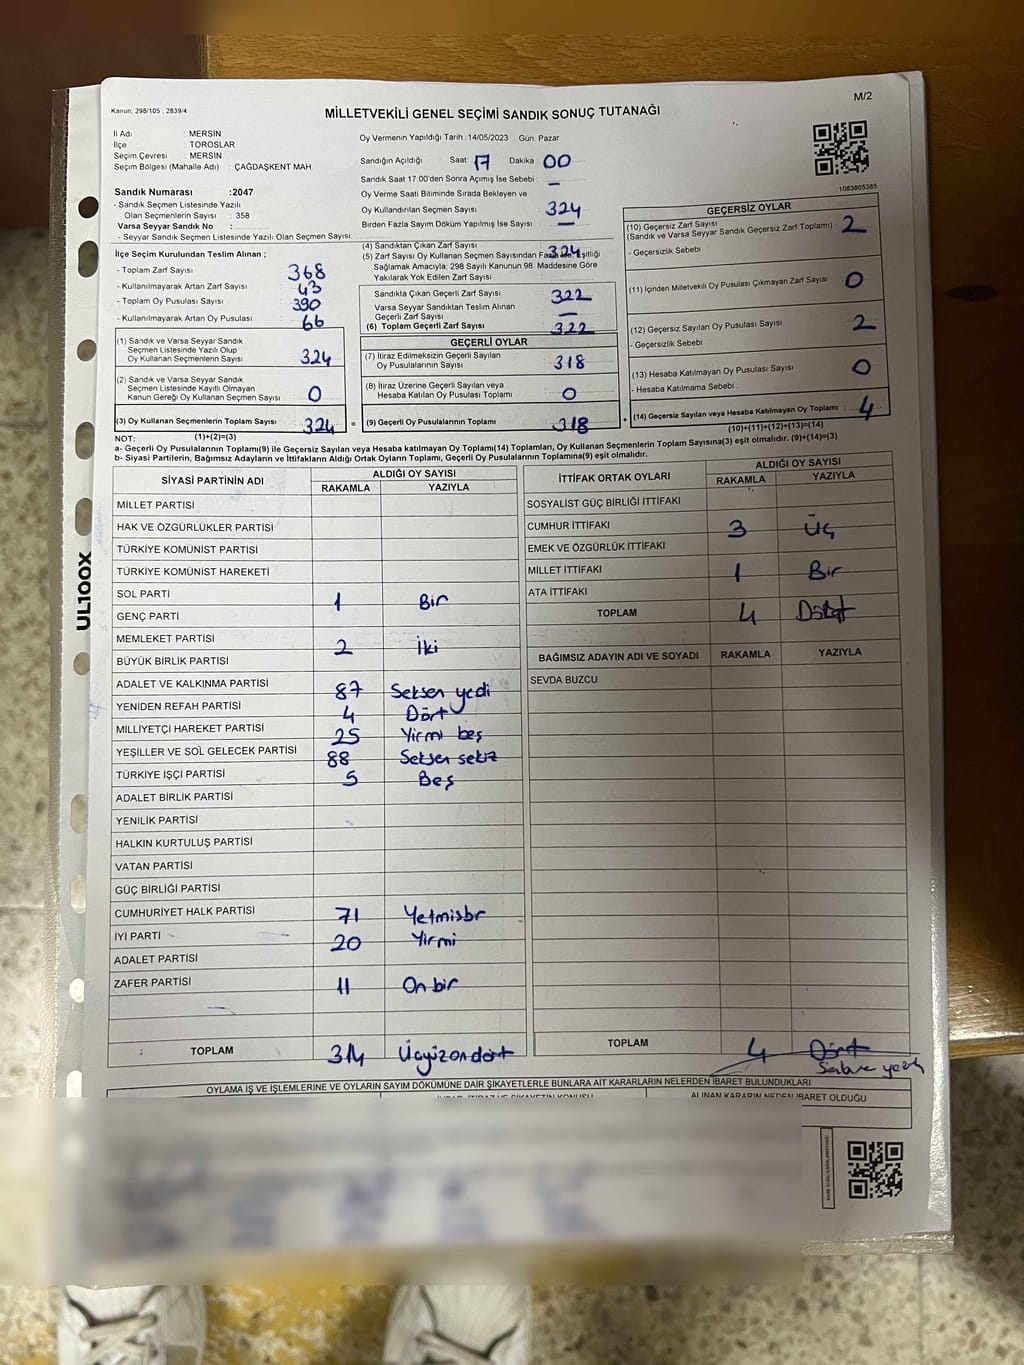 Kanun: 298/105 , 2839/4
M/2
MİLLETVEKİLİ GENEL SEÇİMİ SANDIK SONUÇ TUTANAĞI
İl Adı : MERSİN
İlçe : TOROSLAR
Seçim Çevresi : MERSİN
Seçim Bölgesi (Mahalle Adı) : ÇAĞDAŞKENT MAH
Sandık Numarası :2047
- Sandık Seçmen Listesinde Yazılı
Olan Seçmenlerin Sayısı : 358
Varsa Seyyar Sandık No :
- Seyyar Sandık Seçmen Listesinde Yazılı Olan Seçmen Sayısı:
Oy Vermenin Yapıldığı Tarih :14/05/2023 Gün: Pazar
Sandığın Açıldığı Saat: 17 Dakika: 00
Sandık Saat 17:00'den Sonra Açımış İse Sebebi : –
Oy Verme Saati Bitiminde Sırada Bekleyen ve
Oy Kullandırılan Seçmen Sayısı 324
Birden Fazla Sayım Döküm Yapılmış İse Sayısı : –
1083805385
İlçe Seçim Kurulundan Teslim Alınan ;
- Toplam Zarf Sayısı 368
- Kullanılmayarak Artan Zarf Sayısı 43
- Toplam Oy Pusulası Sayısı 390
- Kullanılmayarak Artan Oy Pusulası 66
(1) Sandık ve Varsa Seyyar Sandık
Seçmen Listesinde Yazılı Olup
Oy Kullanan Seçmenlerin Sayısı 324
(2) Sandık ve Varsa Seyyar Sandık
Seçmen Listesinde Kayıtlı Olmayan
Kanun Gereği Oy Kullanan Seçmen Sayısı 0
(3) Oy Kullanan Seçmenlerin Toplam Sayısı 324 =
(1)+(2)=(3)
(4) Sandıktan Çıkan Zarf Sayısı 324
(5) Zarf Sayısı Oy Kullanan Seçmen Sayısından Fazla İse, Eşitliği
Sağlamak Amacıyla; 298 Sayılı Kanunun 98. Maddesine Göre
Yakılarak Yok Edilen Zarf Sayısı :
Sandıkta Çıkan Geçerli Zarf Sayısı 322
Varsa Seyyar Sandıktan Teslim Alınan
Geçerli Zarf Sayısı –
(6) Toplam Geçerli Zarf Sayısı 322
GEÇERLİ OYLAR
(7) İtiraz Edilmeksizin Geçerli Sayılan
Oy Pusulalarının Sayısı 318
(8) İtiraz Üzerine Geçerli Sayılan veya
Hesaba Katılan Oy Pusulası Toplamı 0
(9) Geçerli Oy Pusulalarının Toplamı 318 +
GEÇERSİZ OYLAR
(10) Geçersiz Zarf Sayısı
(Sandık ve Varsa Seyyar Sandık Geçersiz Zarf Toplamı) 2
- Geçersizlik Sebebi :
(11) İçinden Milletvekili Oy Pusulası Çıkmayan Zarf Sayısı 0
(12) Geçersiz Sayılan Oy Pusulası Sayısı 2
- Geçersizlik Sebebi :
(13) Hesaba Katılmayan Oy Pusulası Sayısı 0
- Hesaba Katılmama Sebebi :
(14) Geçersiz Sayılan veya Hesaba Katılmayan Oy Toplamı 4
(10)+(11)+(12)+(13)=(14)
NOT:
a- Geçerli Oy Pusulalarının Toplamı(9) ile Geçersiz Sayılan veya Hesaba katılmayan Oy Toplamı(14) Toplamları, Oy Kullanan Seçmenlerin Toplam Sayısına(3) eşit olmalıdır. (9)+(14)=(3)
b- Siyasi Partilerin, Bağımsız Adayların ve İttifakların Aldığı Ortak Oyların Toplamı, Geçerli Oy Pusulalarının Toplamına(9) eşit olmalıdır.
SİYASİ PARTİNİN ADI
ALDIĞI OY SAYISI
RAKAMLA YAZIYLA
MİLLET PARTİSİ
HAK VE ÖZGÜRLÜKLER PARTİSİ
TÜRKİYE KOMÜNİST PARTİSİ
TÜRKİYE KOMÜNİST HAREKETİ
SOL PARTİ 1 Bir
GENÇ PARTİ
MEMLEKET PARTİSİ 2 İki
BÜYÜK BİRLİK PARTİSİ
ADALET VE KALKINMA PARTİSİ 87 Seksen yedi
YENİDEN REFAH PARTİSİ 4 Dört
MİLLİYETÇİ HAREKET PARTİSİ 25 Yirmi beş
YEŞİLLER VE SOL GELECEK PARTİSİ 88 Seksen sekiz
TÜRKİYE İŞÇİ PARTİSİ 5 Beş
ADALET BİRLİK PARTİSİ
YENİLİK PARTİSİ
HALKIN KURTULUŞ PARTİSİ
VATAN PARTİSİ
GÜÇ BİRLİĞİ PARTİSİ
CUMHURİYET HALK PARTİSİ 71 Yetmisbr
İYİ PARTİ 20 Yirmi
ADALET PARTİSİ
ZAFER PARTİSİ 11 On bir
TOPLAM 314 Üçyüzondört
İTTİFAK ORTAK OYLARI
ALDIĞI OY SAYISI
RAKAMLA YAZIYLA
SOSYALİST GÜÇ BİRLİĞİ İTTİFAKI
CUMHUR İTTİFAKI 3 Üç
EMEK VE ÖZGÜRLÜK İTTİFAKI
MİLLET İTTİFAKI 1 Bir
ATA İTTİFAKI
TOPLAM 4 Dört
BAĞIMSIZ ADAYIN ADI VE SOYADI RAKAMLA YAZIYLA
SEVDA BUZCU
TOPLAM 4 Dört
OYLAMA İŞ VE İŞLEMLERİNE VE OYLARIN SAYIM DÖKÜMÜNE DAİR ŞİKAYETLERLE BUNLARA AİT KARARLARIN NELERDEN İBARET BULUNDUKLARI
ALINAN KARARIN NEDEN İBARET OLDUĞU
UL100X